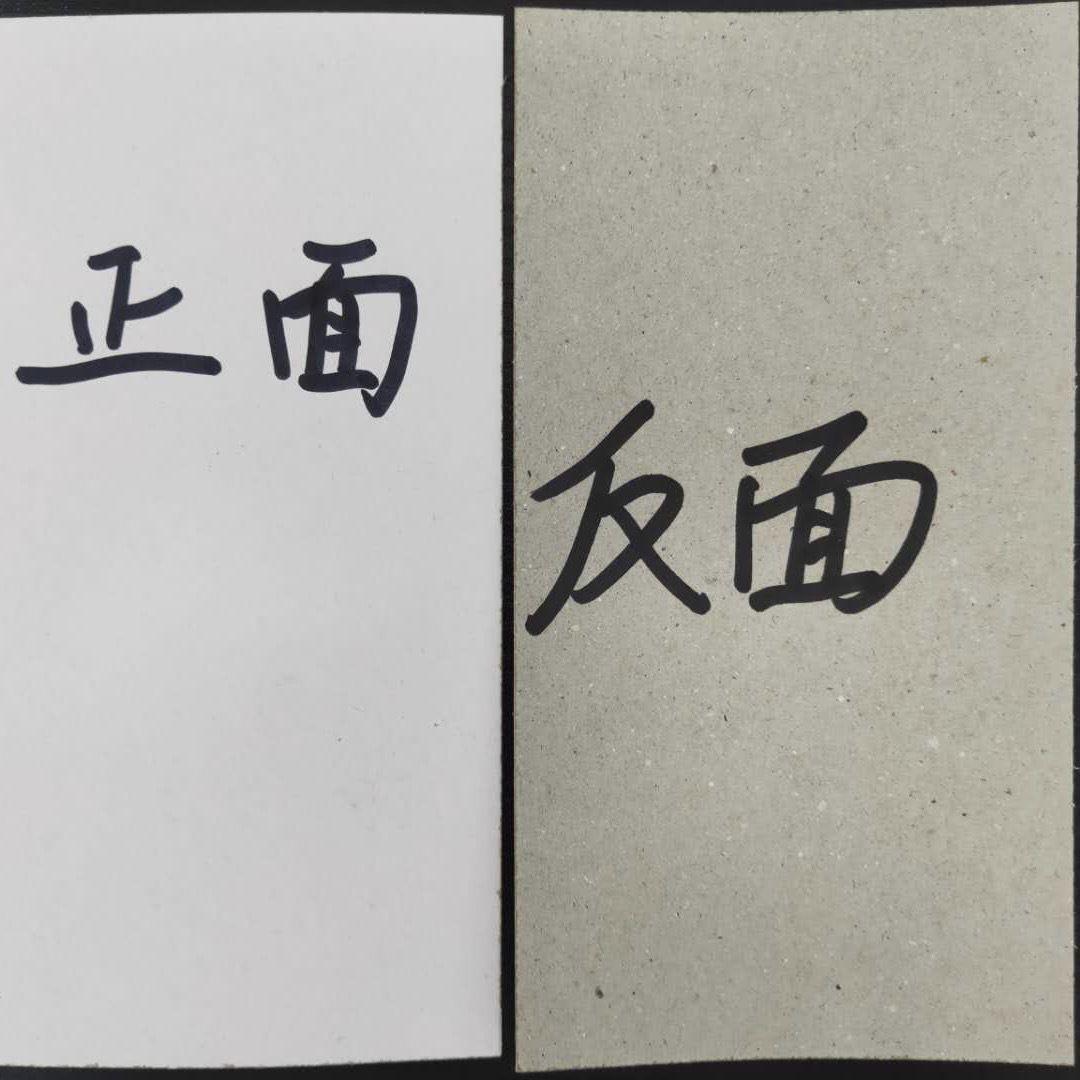 正面
反面